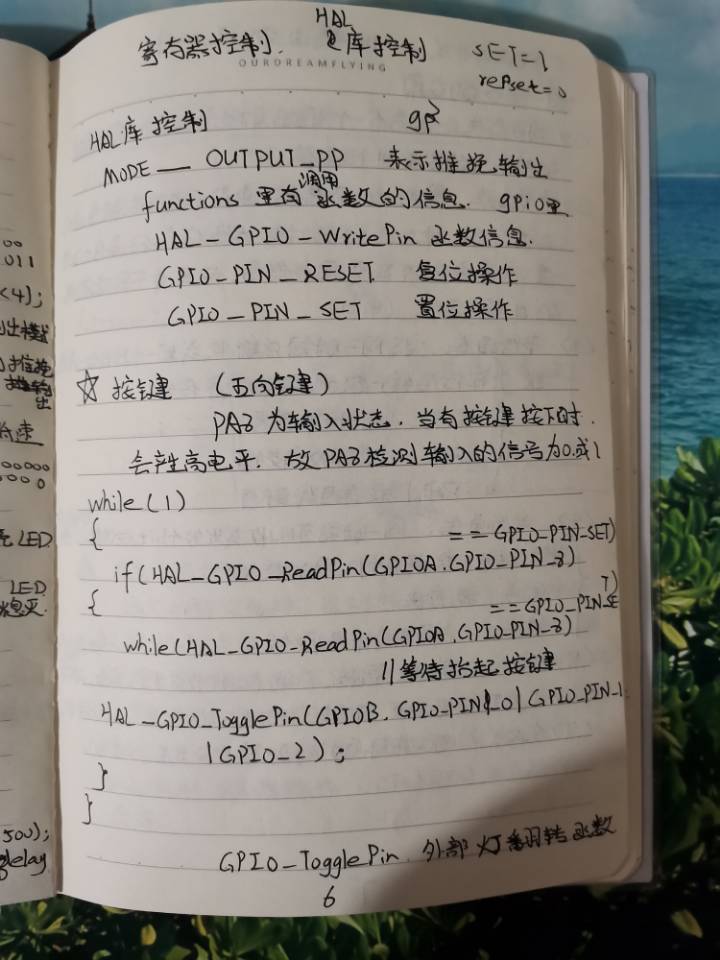 HAL
寄存器控制. 库控制 SET=1
OURDREAMFLYING
repset=0
HAL库控制 gp
MODE — OUTPUT_PP 表示推挽输出
调用
functions 里有函数的信息. gpio里
HAL-GPIO-WritePin 函数信息.
GPIO-PIN_RESET 复位操作
GPIO_PIN_SET 置位操作
☆ 按键 (五向键)
PA8 为输入状态. 当有按键按下时.
会产生高电平. 故PA8检测输入的信号为0或1
while(1)
{ == GPIO_PIN_SET)
if(HAL_GPIO_ReadPin(GPIOA.GPIO_PIN_8)
{ ==GPIO_PIN_SET)
while(HAL_GPIO-ReadPin(GPIOA.GPIO-PIN_8)
//等待抬起按键
HAL_GPIO_TogglePin(GPIOB. GPIO-PIN_0|GPIO_PIN_1
|GPIO_2);
}
}
GPIO_TogglePin. 外部灯翻转函数
6
00
011
<4);
推挽
000000
0000
LED
LED
500);
delay